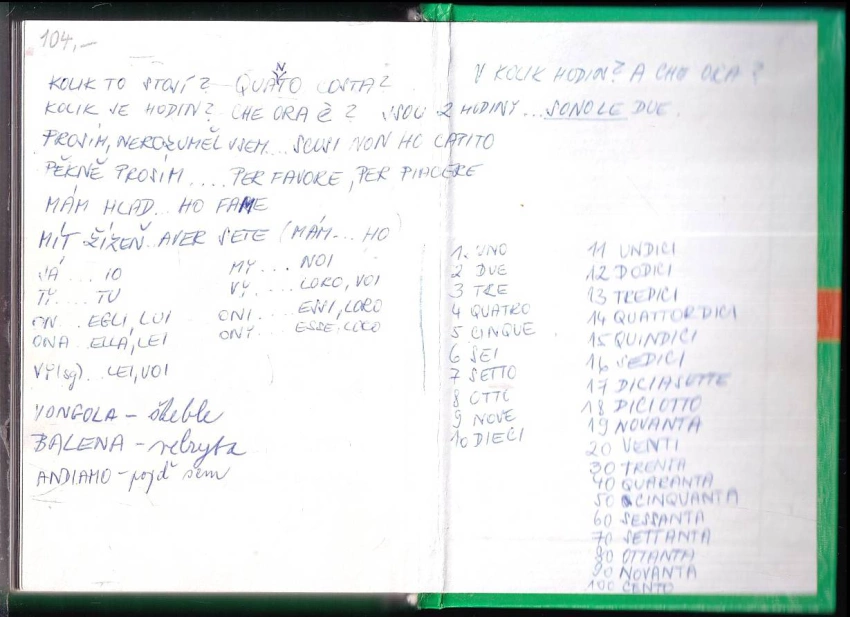 104,-
KOLIK TO STOJÍ? QUANTO COSTA?
KOLIK JE HODIN? CHE ORA È? JSOU 2 HODINY... SONO LE DUE.
PROSÍM, NEROZUMĚL JSEM... SCUSI NON HO CAPITO
PĚKNĚ PROSÍM.... PER FAVORE, PER PIACERE
MÁM HLAD... HO FAME
MÍT ŽÍZEŇ.. AVER SETE (MÁM... HO)
JÁ .... IO MY .... NOI
TY... TU VY..... LORO, VOI
ON... EGLI, LUI ONI .... ESSI, LORO
ONA.. ELLA, LEI ONY... ESSE, LORO
VY(sg).. LEI, VOI
VONGOLA - škeble
BALENA - velryba
ANDIAMO - pojď sem
V KOLIK HODIN? A CHE ORA?
1. UNO
2 DUE
3 TRE
4 QUATRO
5 CINQUE
6 SEI
7 SETTO
8 OTTO
9 NOVE
10 DIECI
11 UNDICI
12 DODICI
13 TREDICI
14 QUATTORDICI
15 QUINDICI
16 SEDICI
17 DICIASETTE
18 DICIOTTO
19 NOVANTA
20 VENTI
30 TRENTA
40 QUARANTA
50 CINQUANTA
60 SESSANTA
70 SETTANTA
80 OTTANTA
90 NOVANTA
100 CENTO